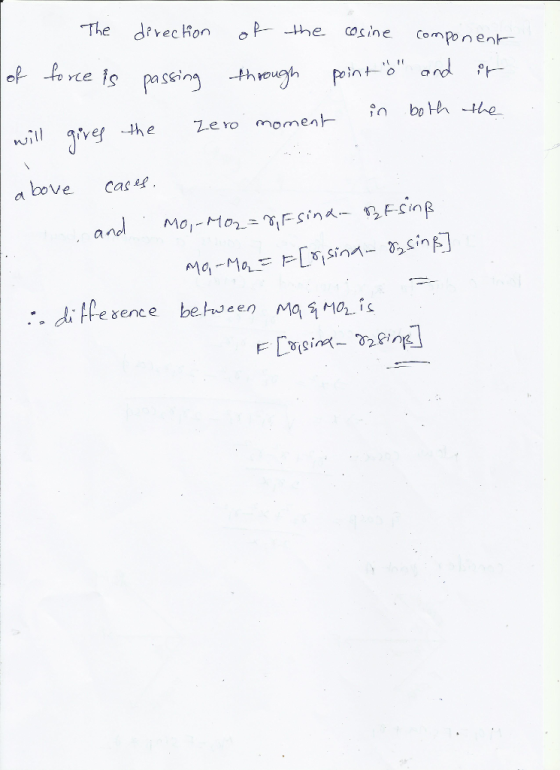 The direction of the cosine component
of force is passing through point "o" and it
will gives the zero moment in both the
above cases.
and Mo₁-Mo₂ = r₁Fsinα - r₂Fsinβ
Mo₁-Mo₂ = F[r₁sinα - r₂sinβ]
∴ difference between Mo₁ & Mo₂ is
F[r₁sinα - r₂sinβ]